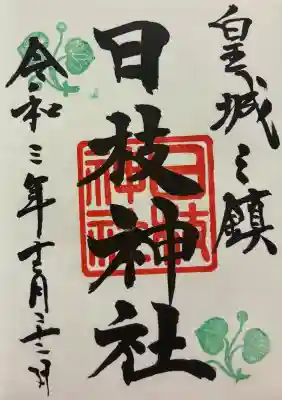 皇城之鎮
日枝神社
日枝神社
令和三年十一月二十二日